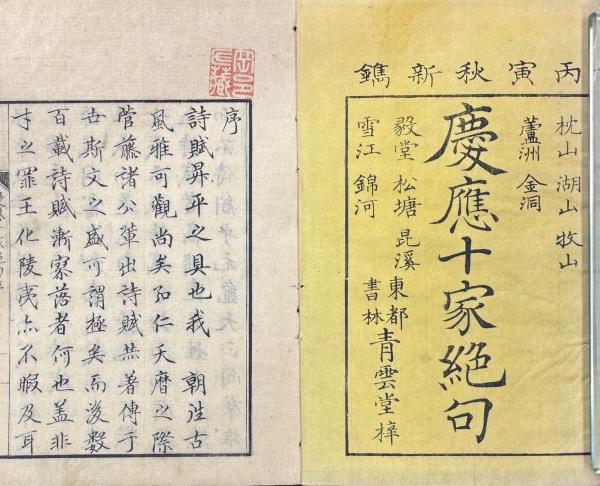 丙寅秋新鐫
枕山 湖山 牧山
蘆洲 金洞
慶應十家絕句
毅堂 松塘 昆溪
雪江 錦河
東都
書林
青雲堂梓
序
詩賦昇平之具也我 朝往古
風雅可觀尚矣弘仁天暦之際
菅藤諸公輩出詩賦 著傳于
古斯文之盛可謂極矣而後數
百載詩賦漸寥落者何也蓋非
才之罪王化陵夷亦不暇及耳